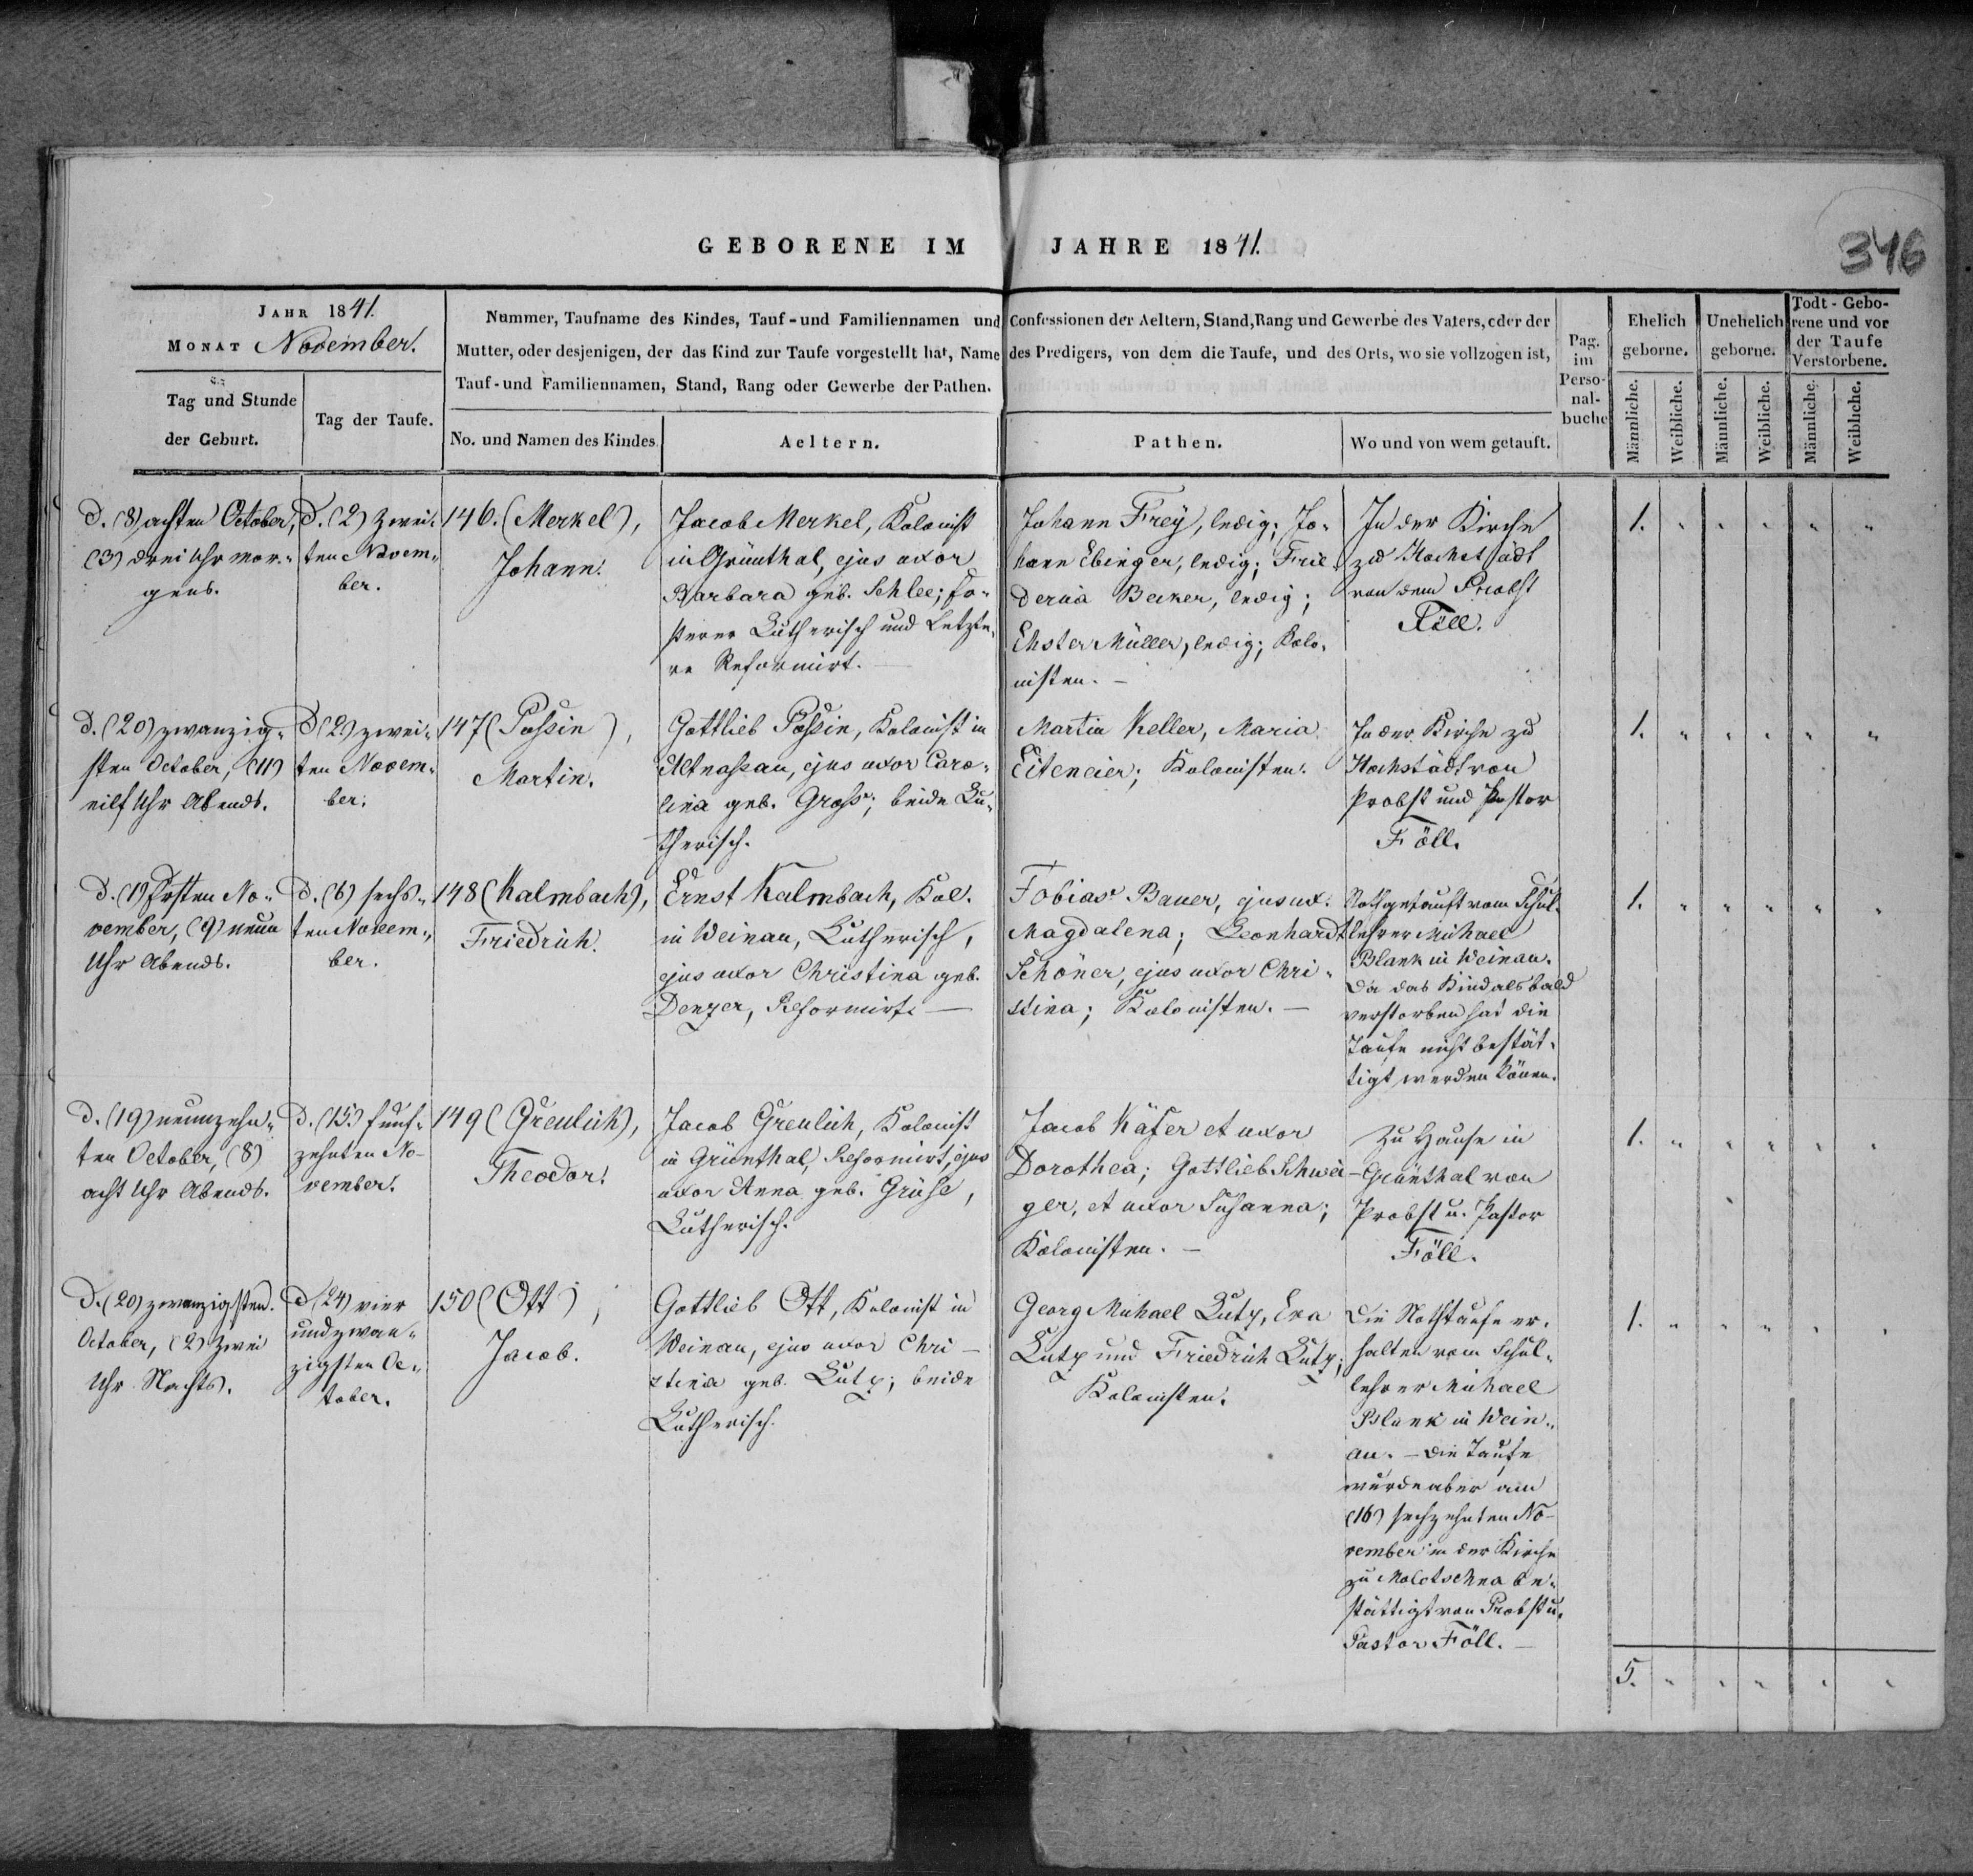 GEBORENE IM JAHRE 1841.
346
JAHR 1841.
MONAT November.
Tag und Stunde
der Geburt.
Tag der Taufe.
Nummer, Taufname des Kindes, Tauf-und Familiennamen und Confessionen der Aeltern, Stand, Rang und Gewerbe des Vaters, oder der
Mutter, oder desjenigen, der das Kind zur Taufe vorgestellt hat, Name des Predigers, von dem die Taufe, und des Orts, wo sie vollzogen ist,
Tauf-und Familiennamen, Stand, Rang oder Gewerbe der Pathen.
No. und Namen des Kindes.
Aeltern.
Pathen.
Wo und von wem getauft.
Pag.
im
Perso-
nal-
buche
Ehelich
geborne.
Unehelich
geborne.
Todt-Gebo-
rene und vor
der Taufe
Verstorbene.
Männliche.
Weibliche.
Männliche.
Weibliche.
Männliche.
Weibliche.
D. (8) achten October,
(3) drei Uhr mor-
gens.
D. (2) zwei-
ten Novem-
ber.
146. (Merkel),
Johann.
Jacob Merkel, Kolonist
in Grünthal, ejus uxor
Barbara geb. Schlee; Er-
sterer Lutherisch und Letzte-
re Reformirt.
Johann Frey, ledig; Jo-
hann Ebinger, ledig; Frie-
derica Becker, ledig;
Ehster Müller, ledig; Kolo-
nisten. —
In der Kirche
zu Hochstädt
von dem Probst
Föll.
1. " " " " "
D. (20) zwanzig-
sten October, (11)
eilf Uhr Abends.
D (2) zwei-
ten Novem-
ber.
147 (Possin),
Martin.
Gottlieb Possin, Kolonist in
Altnassau, ejus uxor Caro-
lina geb. Gross; beide Lu-
therisch.
Martin Keller, Maria
Eiteneier; Kolonisten.
In der Kirche zu
Hochstädt von
Probst und Pastor
Föll.
1. " " " " "
D. (1) Ersten No-
vember, (9) neun
Uhr Abends.
D. (6) sechs-
ten Novem-
ber.
148 (Kalmbach),
Friedrich.
Ernst Kalmbach, Kol.
in Weinau, Lutherisch,
ejus uxor Christina geb.
Denzer, Reformirt. —
Tobias Bauer, ejus ux.
Magdalena; Leonhardt
Schöner, ejus uxor Chri-
stina; Kolonisten. —
Nothgetauft vom Schul-
lehrer Michael
Blank in Weinau.
Da das Kind alsbald
verstorben hat die
Taufe nicht bestät-
tigt werden können.
1. " " " " "
D. (19) neunzehn-
ten October, (8)
acht Uhr Abends.
D. (15) funf-
zehnten No-
vember.
149 (Greulich),
Theodor.
Jacob Greulich, Kolonist
in Grünthal, Reformirt, ejus
uxor Anna geb. Grüse,
Lutherisch.
Jacob Käfer et uxor
Dorothea; Gottlieb Schwei-
ger, et uxor Susanna;
Kolonisten. —
Zu Hause in
Grünthal von
Probst u. Pastor
Föll.
1. " " " " "
D. (20) zwanzigsten
October, (2) zwei
Uhr Nachts.
D (24) vier
und zwan-
zigsten Oc-
tober.
150 (Ott),
Jacob.
Gottlieb Ott, Kolonist in
Weinau, ejus uxor Chri-
stina geb. Lutz; beide
Lutherisch.
Georg Michael Lutz, Eva
Lutz und Friedrich Lutz;
Kolonisten.
Die Nothtaufe er-
halten vom Schul-
lehrer Michael
Blank in Wein-
au. — Die Taufe
wurde aber am
(16) sechzehnten No-
vember in der Kirche
zu Molotschna be-
stättigt von Probst u.
Pastor Föll. —
1. " " " " "
5. " " " " "